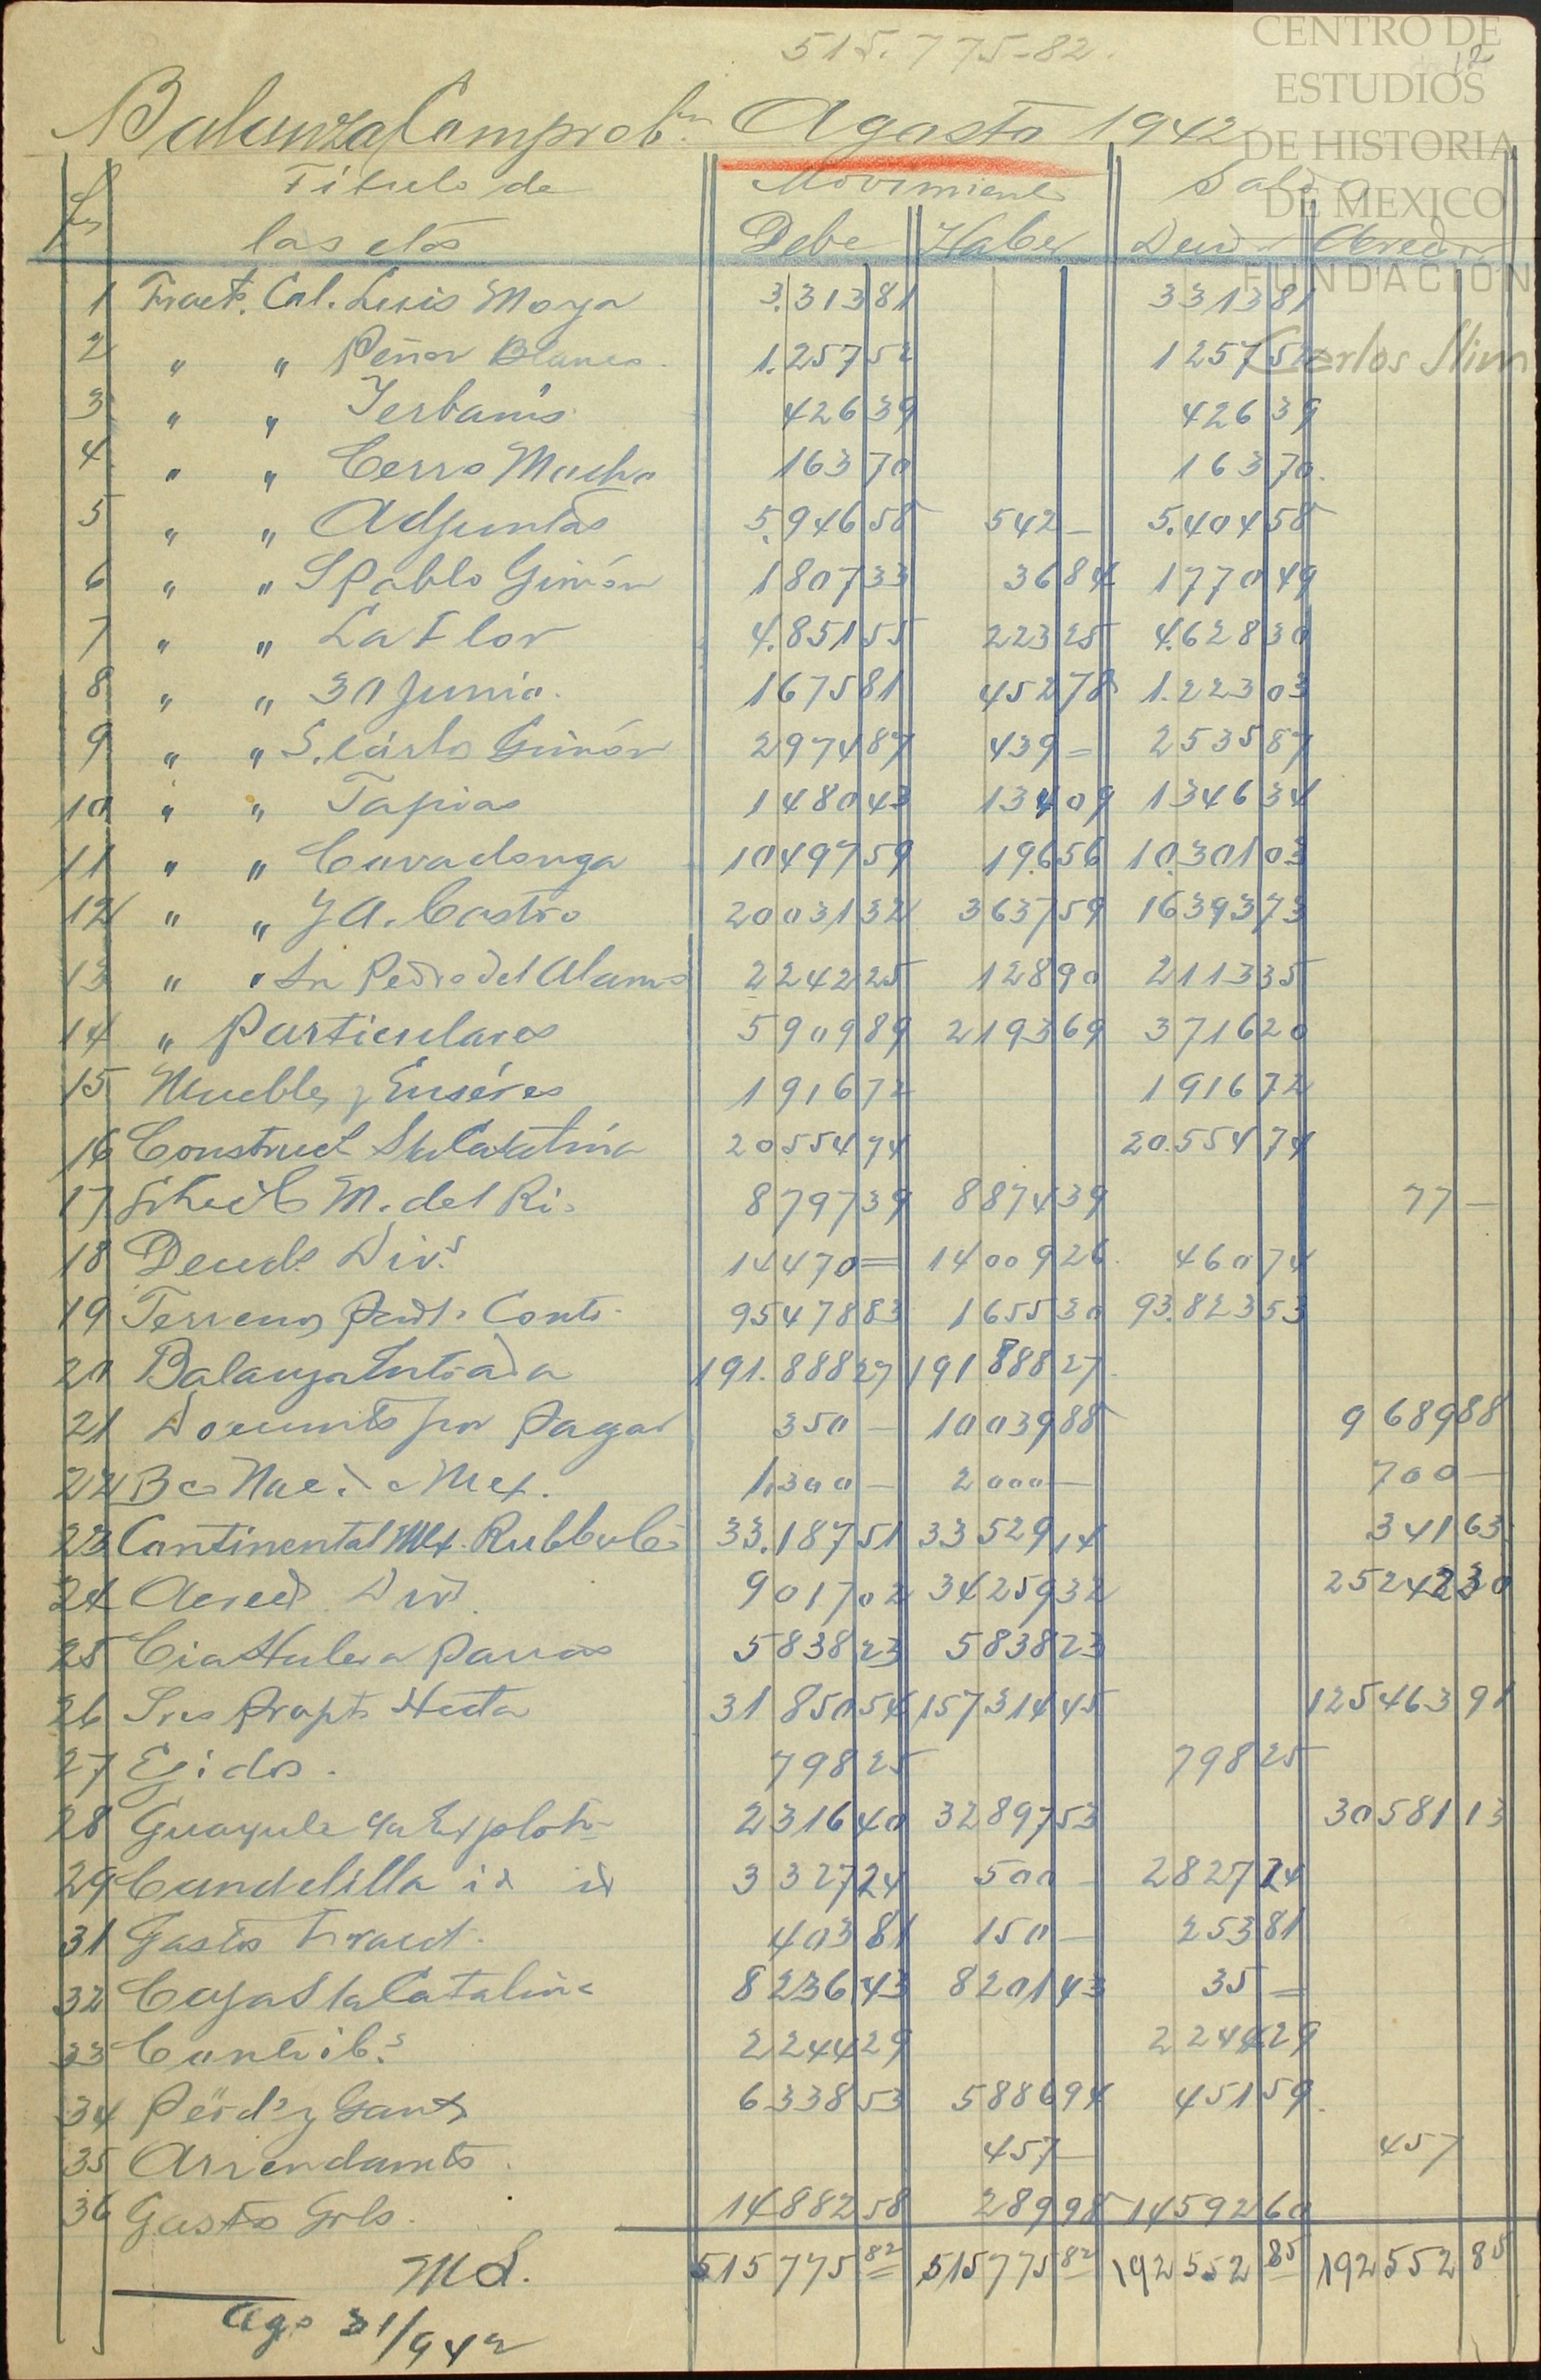 515.775-82.
12
CENTRO DE
ESTUDIOS
DE HISTORIA
DE MEXICO
FUNDACIÓN
Carlos Slim
Balanza Comprobn Agosto 1942
Fs Titulo de Movimient Saldo
las ctas Debe Haber Deud Acredr
1 Fract. Cal. Luis Moya 3.313 81 3313 81
2 " " Peñon Blanco. 1.257 52 1257 52
3 " " Yerbanis 426 39 426 39
4 " " Cerro Mocho 163 70 163 70.
5 " " Adjuntas 5.946 58 542 — 5.404 58
6 " " S Pablo Gimón 1807 33 36 84 1770 49
7 " " La Flor 4.851 55 223 25 4.628 30
8 " " 30 Junio. 1675 81 452 78 1.223 03
9 " " S. Cárlos Gimón 2974 87 439 = 2535 87
10 " " Tapias 1480 43 134 09 1346 34
11 " " Covadonga 10497 59 196.56 10.301 03
12 " " J A. Castro 20031 32 3637 59 16393 73
13 " " Sn Pedro del Alamo 2242 25 128 90 2113 35
14 " Particulares 5909 89 2193 69 3716 20
15 Muebles y Enséres 1916 72 1916 72
16 Construct Sta Catatina 20554 74 20.554 74
17 M. del Rio 8797 39 8874 39 77 —
18 Deuds Divs 14470 = 14009 26. 460 74
19 Terrenos Conts. 95478 83 1655 30 93.823 53
20 Balanza Entrada 191.888 27 191888 27.
21 Documts por Pagar 350 — 10039 88 9689 88
22 Bco Nac. de Mex. 1.300 — 2000 — 700 —
23 Continental Mex. Rubber Co 33.187 51 33529 14 341 63.
24 Acreed Divs. 9017 02 34259 32 25242 30
25 Cia Hulera Parras 5838 23 5838 23
26 Srs Propts Hcda 31850 54 157314 45 125463 91
27 Ejidos. 798 25 798 25
28 Guayule en Explotn 2316 40 32897 53 30581 13
29 Candelilla id id 3327 24 500 — 2827 24
31 Gastos Fract. 403 81 150 — 253 81
32 Caja Sta Catalina 8236 43 8201 43 35 =
33 Contribs 2244 29 2244 29
34 Pérds y Gans 6338 53 5886 94 451 59.
35 Arrendamts. 457 — 457
36 Gastos Grls. 14882 58 289 98 14592 60
Md. 515775 82 515775 82 192552 85 192552 85
Ago 31/942